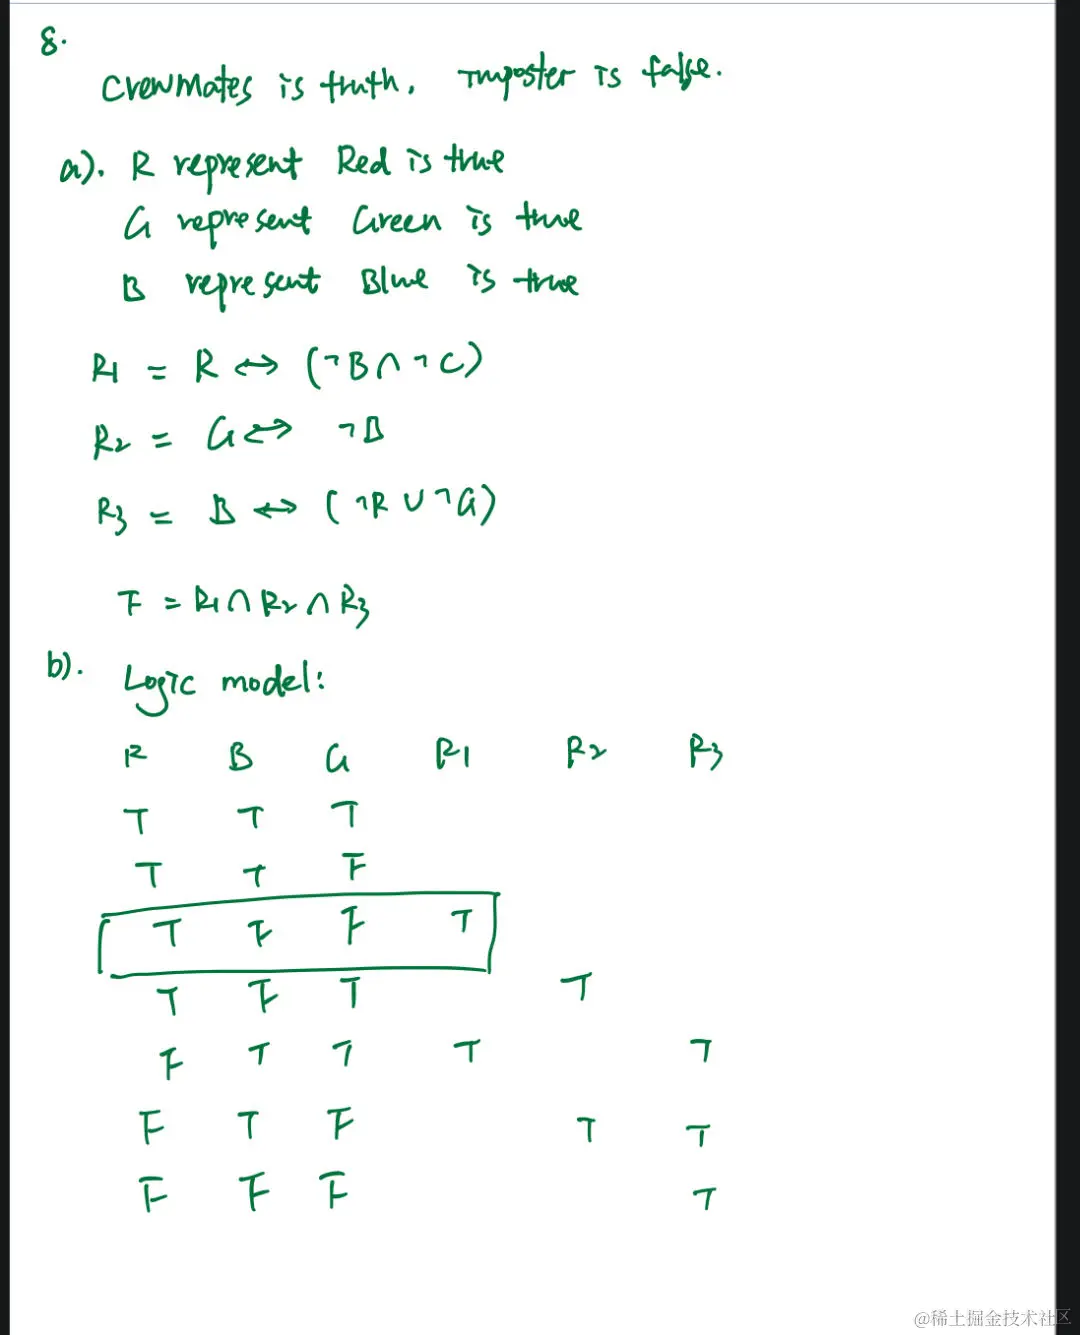 8.
Crewmates is truth. Imposter is false.
a). R represent Red is true
G represent Green is true
B represent Blue is true
R1 = R ↔ (¬B ∩ ¬C)
R2 = G ↔ ¬B
R3 = B ↔ (¬R ∪ ¬G)
F = R1 ∩ R2 ∩ R3
b). Logic model:
R B G R1 R2 R3
T T T
T T F
T F F T
T F T T
F T T T T
F T F T T
F F F T
@稀土掘金技术社区